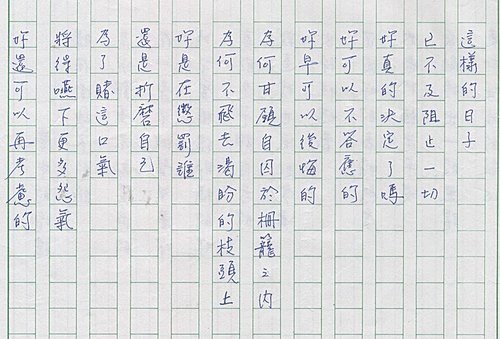 這樣的日子
已不及阻止一切
妳真的決定了嗎
妳可以不答應的
妳早可以後悔的
為何甘願自囚於柵籠之內
為何不飛去渴盼的枝頭上
妳是在懲罰誰
還是折磨自己
為了賭這口氣
將得嚥下更多怨氣
妳還可以再考慮的